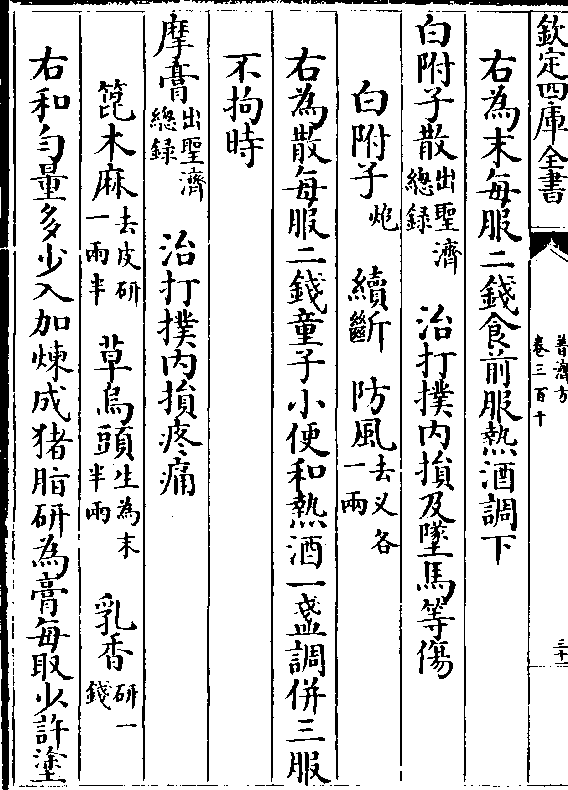 欽定四庫全書
普濟方
卷三百十
三十二
右為末每服二錢食前服熱酒調下
白附子散出聖濟總録　治打撲内損及墜馬等傷
白附子炮　續斷　防風去乂各一兩
右為散每服二錢童子小便和熱酒一盞調併三服
不拘時
摩膏出聖濟總録　治打撲内損疼痛
箆木麻去皮研一兩半　草烏頭生為末半兩　乳香研一錢
右和勻量多少入加煉成猪脂研為膏每取少許塗